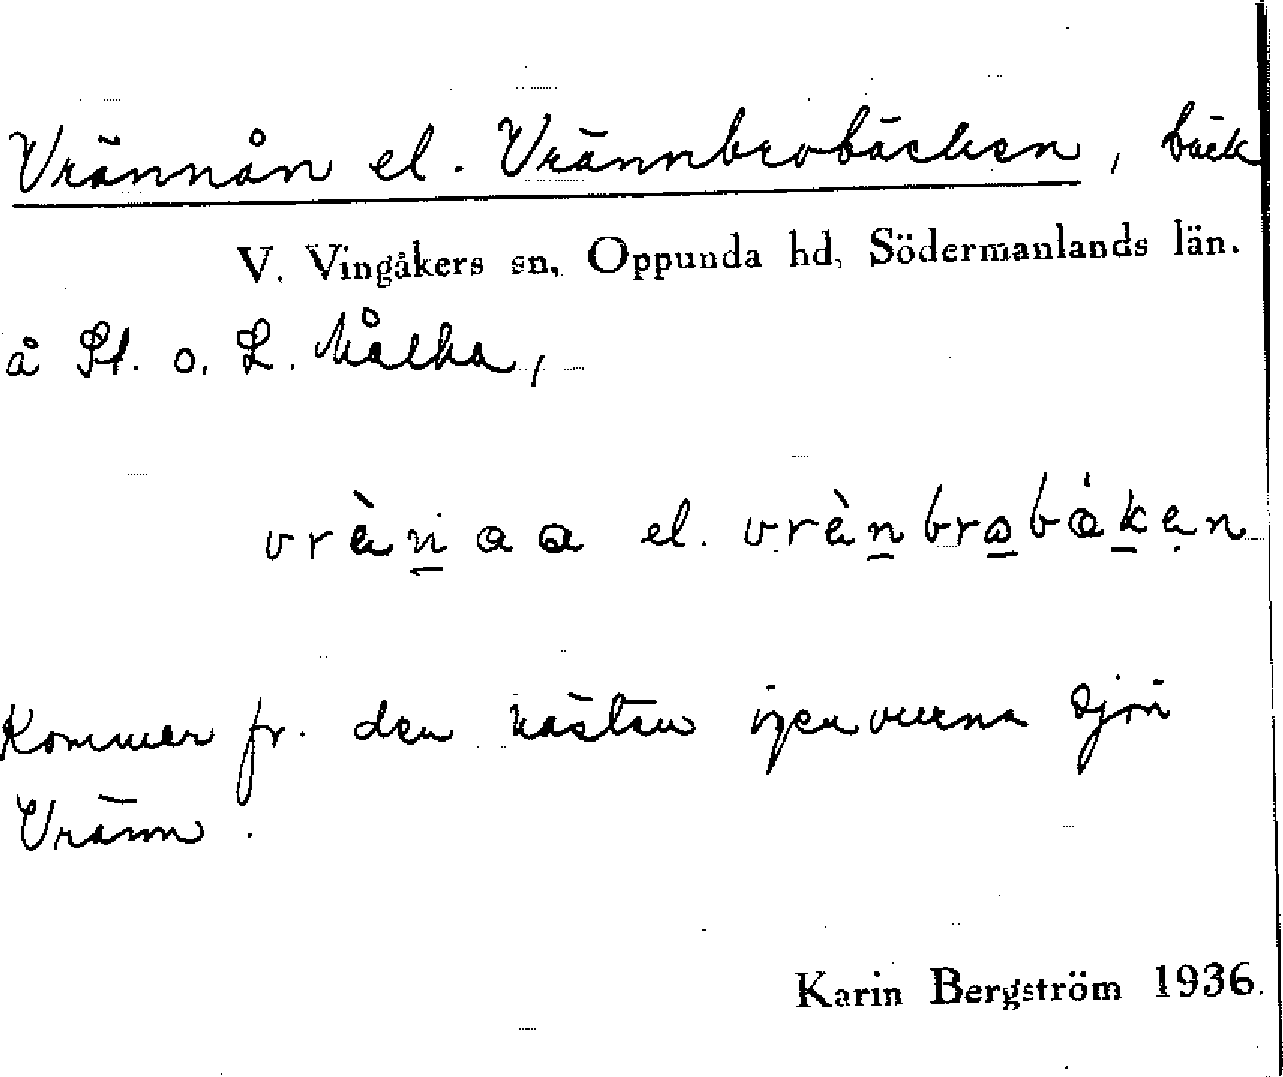 Vrännån el. Vrännbrobäcken, bäck
V. Vingåkers sn, Oppunda hd, Södermanlands län.
å St. o. L. Kålka,
vrènaa el. vrènbrobäkan
Kommer fr. den nästan igenvuxna sjön
Vränn.
Karin Bergström 1936.